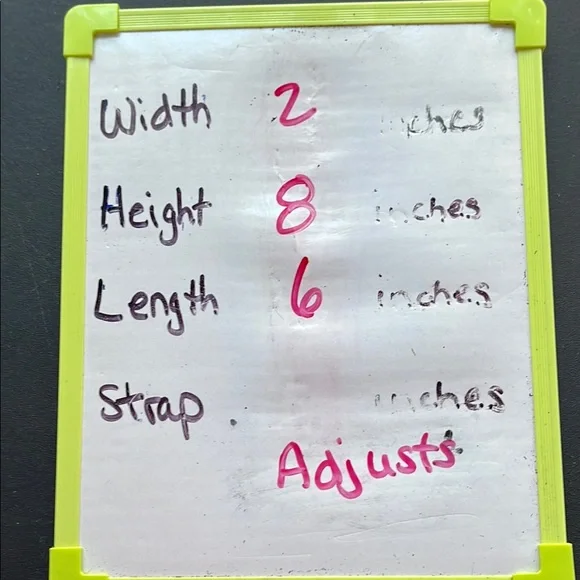 Width 2 inches
Height 8 inches
Length 6 inches
Strap inches
Adjusts